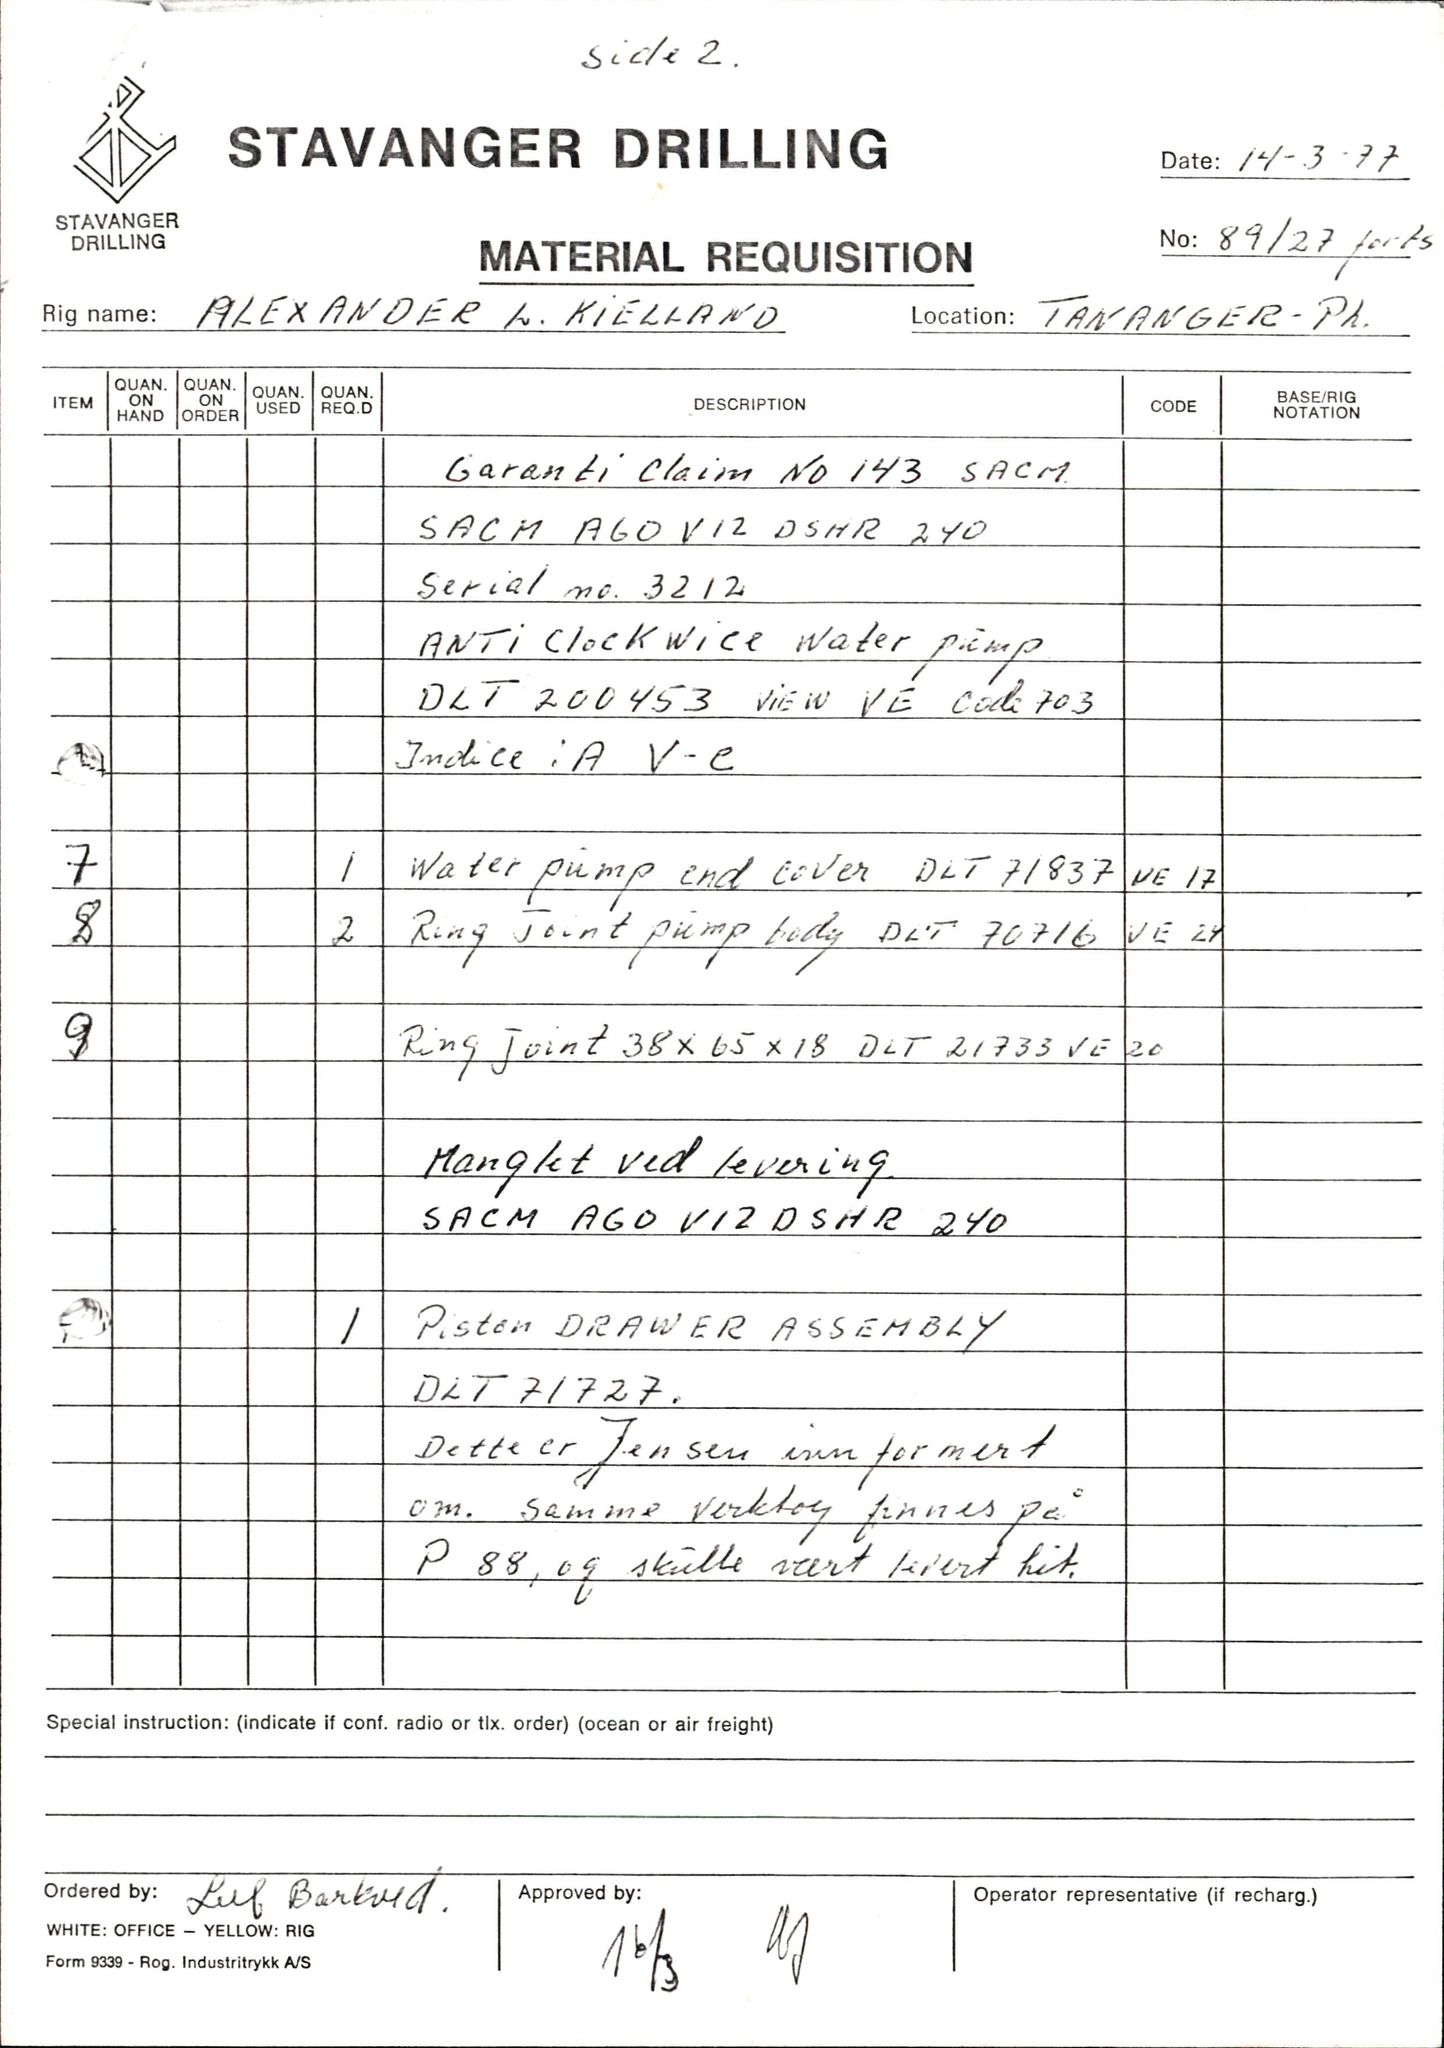 side 2.
STAVANGER DRILLING
STAVANGER
DRILLING
Date: 14-3-77
No: 89/27 forts
MATERIAL REQUISITION
Rig name: ALEXANDER L. KIELLAND
Location: TANANGER - Ph.
ITEM QUAN. ON HAND QUAN. ON ORDER QUAN. USED QUAN. REQ.D DESCRIPTION CODE BASE/RIG NOTATION
Garanti Claim No 143 SACM.
SACM AGO V12 DSHR 240
Serial no. 3212
ANTi ClocKWice Water pump
DLT 200453 ViEW VE Code 703
Indice : A V-e
7 1 Water pump end cover DLT 71837 VE 17
8 2 Ring Joint pump body DLT 70716 VE 24
9 Ring Joint 38 x 65 x 18 DLT 21733 VE 20
Manglet ved levering
SACM AGO V12 DSHR 240
1 Piston DRAWER ASSEMBLY
DLT 71727.
Dette er Jensen innformert
om. Samme verktøy finnes på
P 88, og skulle vært levert hit.
Special instruction: (indicate if conf. radio or tlx. order) (ocean or air freight)
Ordered by: Leif Barkved.
Approved by:
16/3
Operator representative (if recharg.)
WHITE: OFFICE – YELLOW: RIG
Form 9339 - Rog. Industritrykk A/S